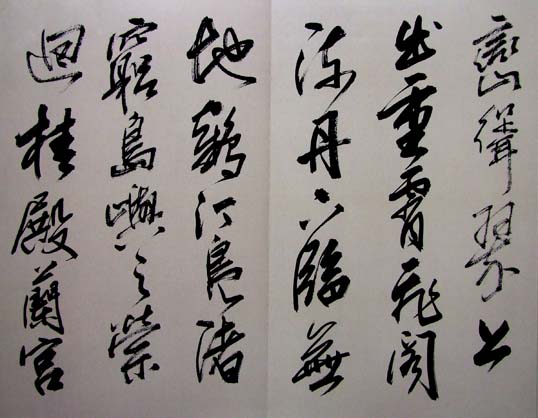 巒聳翠上
出重霄飛閣
流丹下臨無
地鶴汀鳧渚
窮島嶼之縈
迴桂殿蘭宮